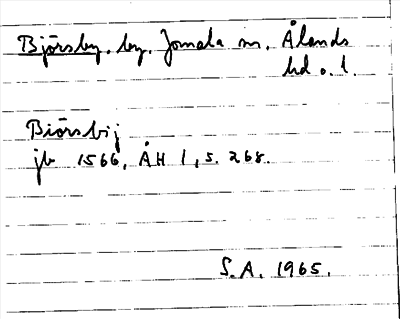 Björsby, by, Jomala sn, Ålands
hd o. l.
Biörsbij
jb 1566, ÅH 1, s. 268.
S.A. 1965.